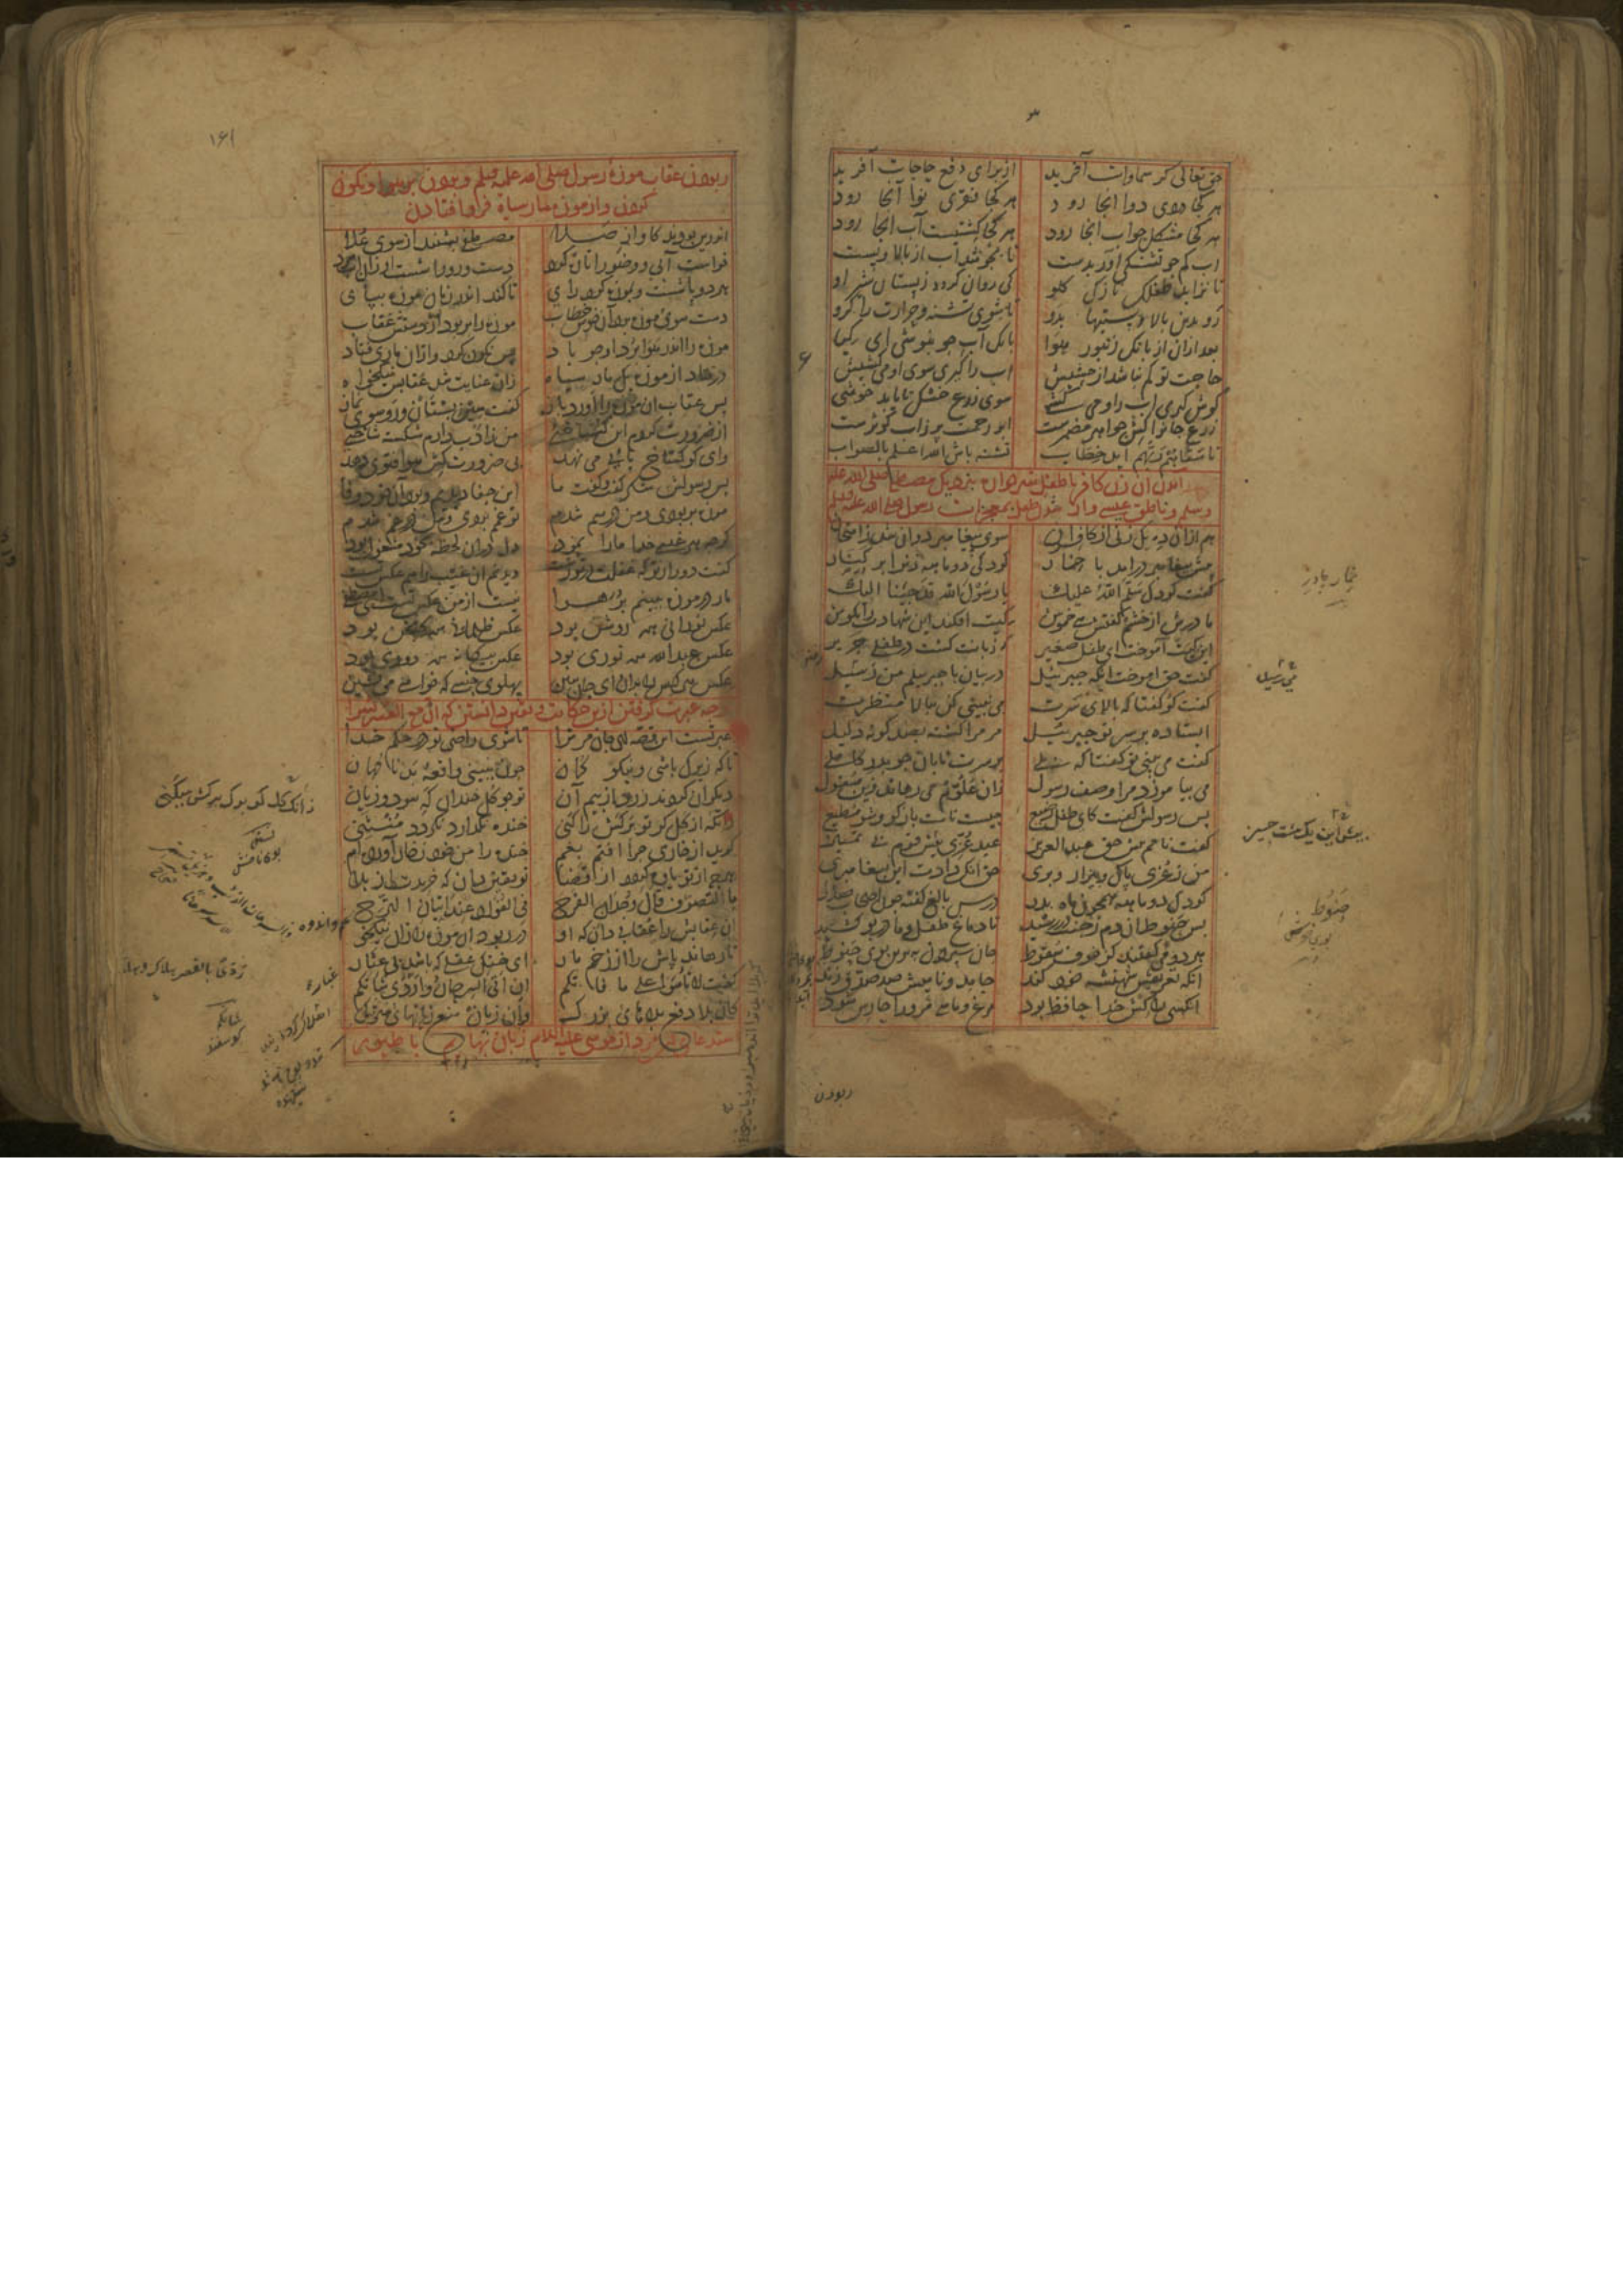 حق تعالی کر سماوات آفرید از برای دفع حاجات آفرید
هر کجا دردی دوا آنجا رود هر کجا فقری نوا آنجا رود
هر کجا مشکل جواب آنجا رود هر کجا کشتیست آب آنجا رود
آب کم جو تشنگی آور بدست تا بجوشد آب از بالا و پست
تا نزاید طفلک نازک گلو کی روان کردد ز پستان شیر او
رو بدین بالا و پستیها بدو تا شوی تشنه و حرارت را کرو
بعد ازان از بانک زنبور هوا بانک آب جو بنوشی ای کیا
حاجت تو کم نباشد از حشیش آب را کیری سوی او می کشیش
کوش کیری آب را و می کشی سوی زرع خشک تا یابد خوشی
زرع جانرا کش جواهر مضمرست ابر رحمت پر ز آب کوثرست
تا سقاهم ربهم آید خطاب تشنه باش الله اعلم بالصواب
آمدن آن زن کافر با طفل شیرخواره بنزدیک مصطفی صلی الله علیه
وسلم و ناطق عیسی وار شدن طفل بمعجزات رسول صلی الله علیه وسلم
هم ازان ده یک زنی از کافران سوی پیغامبر دوان شد ز امتحان
پیش پیغامبر درآمد با خمار کودکی دو ماهه زنرا بر کنار
کفت کودک سلم الله علیک یا رسول الله قد جئنا الیک
مادرش از خشم کفتش هی خموش کیت افکند این شهادت را بکوش
این کیت آموخت ای طفل صغیر که زبانت کشت در طفلی جریر
کفت حق آموخت آنکه جبرئیل در بیان با جبرئیلم من رسیل
کفت کو کفتا که بالای سرت می نبینی کن ببالا منظرت
ایستاده بر سر تو جبرئیل مر مرا کشته بصد کونه دلیل
کفت می بینی تو کفتا که بلی بر سرت تابان چو بدر کاملی
می بیاموزد مرا وصف رسول زان علوم می رهاند زین سفول
پس رسولش کفت کای طفل رضیع چیست نامت باز کو و شو مطیع
کفت نامم پیش حق عبدالعزیز عبد عزی پیش قوم
من ز عزی پاک و بیزار و بری حق آنکه دادت این پیغامبری
کودک دو ماهه همچون ماه بدر درس بالغ کفته چون اصحاب صدر
پس حنوط آن دم ز جنت در رسید تا دماغ طفل و مادر بو کشید
هر دو می کفتند کز خوف سقوط جان سپردن به برین بوی حنوط
آنکه تعریفش شهنشه خود کند جامد و نامیش صد صدق زند
آنکسی را کش خدا حافظ بود مرغ و ماهی مرورا حارس شود
می رسیل
پیش این یک مشت حیز
حنوط
بوی خوش
ربودن
۱۶۱
ربودن عقاب موزهٔ رسول صلی الله علیه وسلم و بردن بر هوا و نکون
کردن و از موزه مار سیاه فرو افتادن
اندرین بودند کاواز صلا مصطفی بشنید از سوی علا
خواست آبی و وضو را تازه کرد دست و رو را شست او زان آب سرد
هر دو پا شست و بموزه کرد رای
دست سوی موزه برد آن خوش خطاب موزه را بربود از دستش عقاب
موزه را اندر هوا برد او چو باد پس نکون کرد و ازان ماری فتاد
در فتاد از موزه یک مار سیاه زان عنایت شد عقابش نیکخواه
پس عقاب آن موزه را آورد باز کفت هین بستان و رو سوی نماز
از ضرورت کردم این کستاخیی من ز ادب دارم شکسته شاخیی
وای کو کستاخ پایی می نهد بی ضرورت کش هوا فتوی دهد
پس رسولش شکر کفت و کفت ما این جفا دیدیم و بود آن خود وفا
موزه بربودی و من درهم شدم تو غمم بردی و من در غم شدم
کرچه هر غیبی خدا ما را نمود دل دران لحظه بخود مشغول بود
کفت دور از تو که غفلت در تو رست دیدنم آن غیب را هم عکس تست
مار در موزه ببینم بر هوا نیست از من عکس تست ای مصطفی
عکس نورانی همه روشن بود عکس ظلمانی همه کلخن بود
عکس عبدالله همه نوری بود عکس بیکانه همه دوری بود
عکس هر کس را بدان ای جان ببین پهلوی جنسی که خواهی می نشین
وجه عبرت کرفتن ازین حکایت و یقین دانستن که ان مع العسر یسرا
عبرتست این قصه ای جان مر ترا تا شوی راضی تو در حکم خدا
تا که زیرک باشی و نیکو کمان چون ببینی واقعهٔ بد ناکهان
دیکران کردند زرد از بیم آن تو چو کل خندان که سود و زیان
زانکه از کل کر تو برکش را کنی خنده نکذارد نکردد منثنی
کوید از خاری چرا افتم بغم خنده را من خود ز خار آورده ام
هرچ از تو یاوه کردد از قضا تو یقین دان که خریدت از بلا
ما التصوف قال وجدان الفرح فی الفؤاد عند اتیان الترح
آن عقابش را عقابی دان که او در ربود آن موزه را زان نیکخو
تا رهاند پاش را از زخم مار ای خنک عقلی که باشد بی غبار
کفت لا تأسوا علی ما فاتکم ان اتی السرحان واردی شاتکم
کان بلا دفع بلاهای بزرک وان زیان منع زیانهای سترک
استدعای آن مرد از موسی علیه السلام زبان بهایم با طیور
زانکه کل کر برک برکش میکنی
غبار
کوسفند